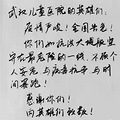 武汉儿童医院的英雄们:
疫情严峻!全国共克!
你们如抗洪大堤般坚
守在最危险的一线,不顾个
人安危与病毒和死神与时
间赛跑!
感谢你们!
向英雄们致敬!